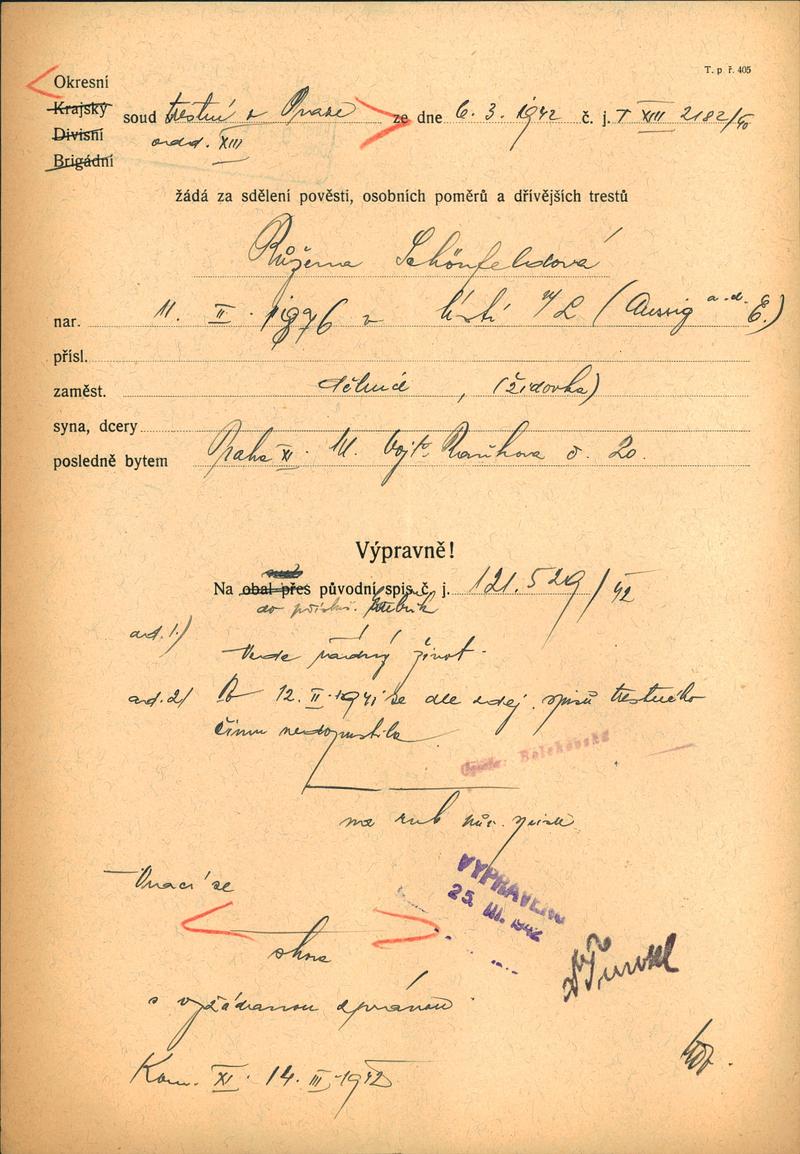 T. p. ř. 405
Okresní
Krajský
Divisní
Brigádní
soud trestní v Praze ze dne 6. 3. 1942 č. j. T XIII 2182/40
odd. XIII
žádá za sdělení pověsti, osobních poměrů a dřívějších trestů
Růžena Schönfeldová
nar. 11. II. 1896 v Ústí n/L (Aussig a.d. E.)
přísl.
zaměst. dělnice, (židovka)
syna, dcery
posledně bytem Praha XI. Ul. Vojt. Raňkova č. 20.
Výpravně!
Na obal přes původní spis č. j. 121.529/42
do
ad. 1.) Vede řádný život.
ad. 2/ Do 12. II. 1941 se dle zdej. spisů trestného
činu nedopustila
na rub pův. spisu
Vrací se
shora
s vyžádanou zprávou
VYPRAVENO
25. III. 1942
Kom. XI. 14. III. 1942